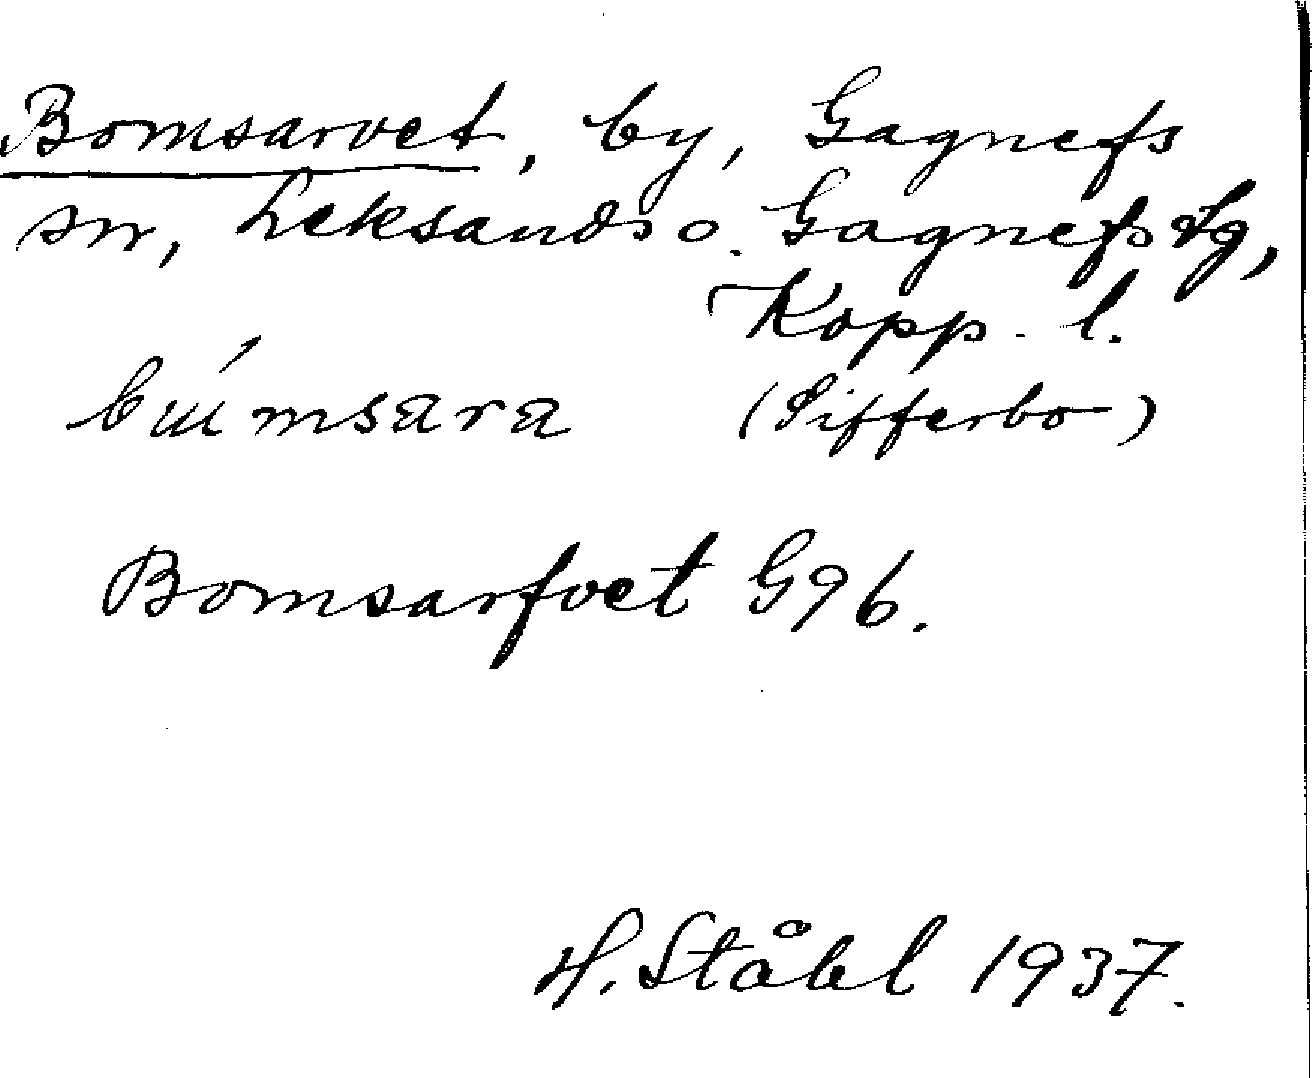 Bomsarvet, by, Gagnefs
sn, Leksands o. Gagnefs tg,
Kopp. l.
búmsara (Sifferbo)
Bomsarfvet G96.
H. Ståhl 1937.